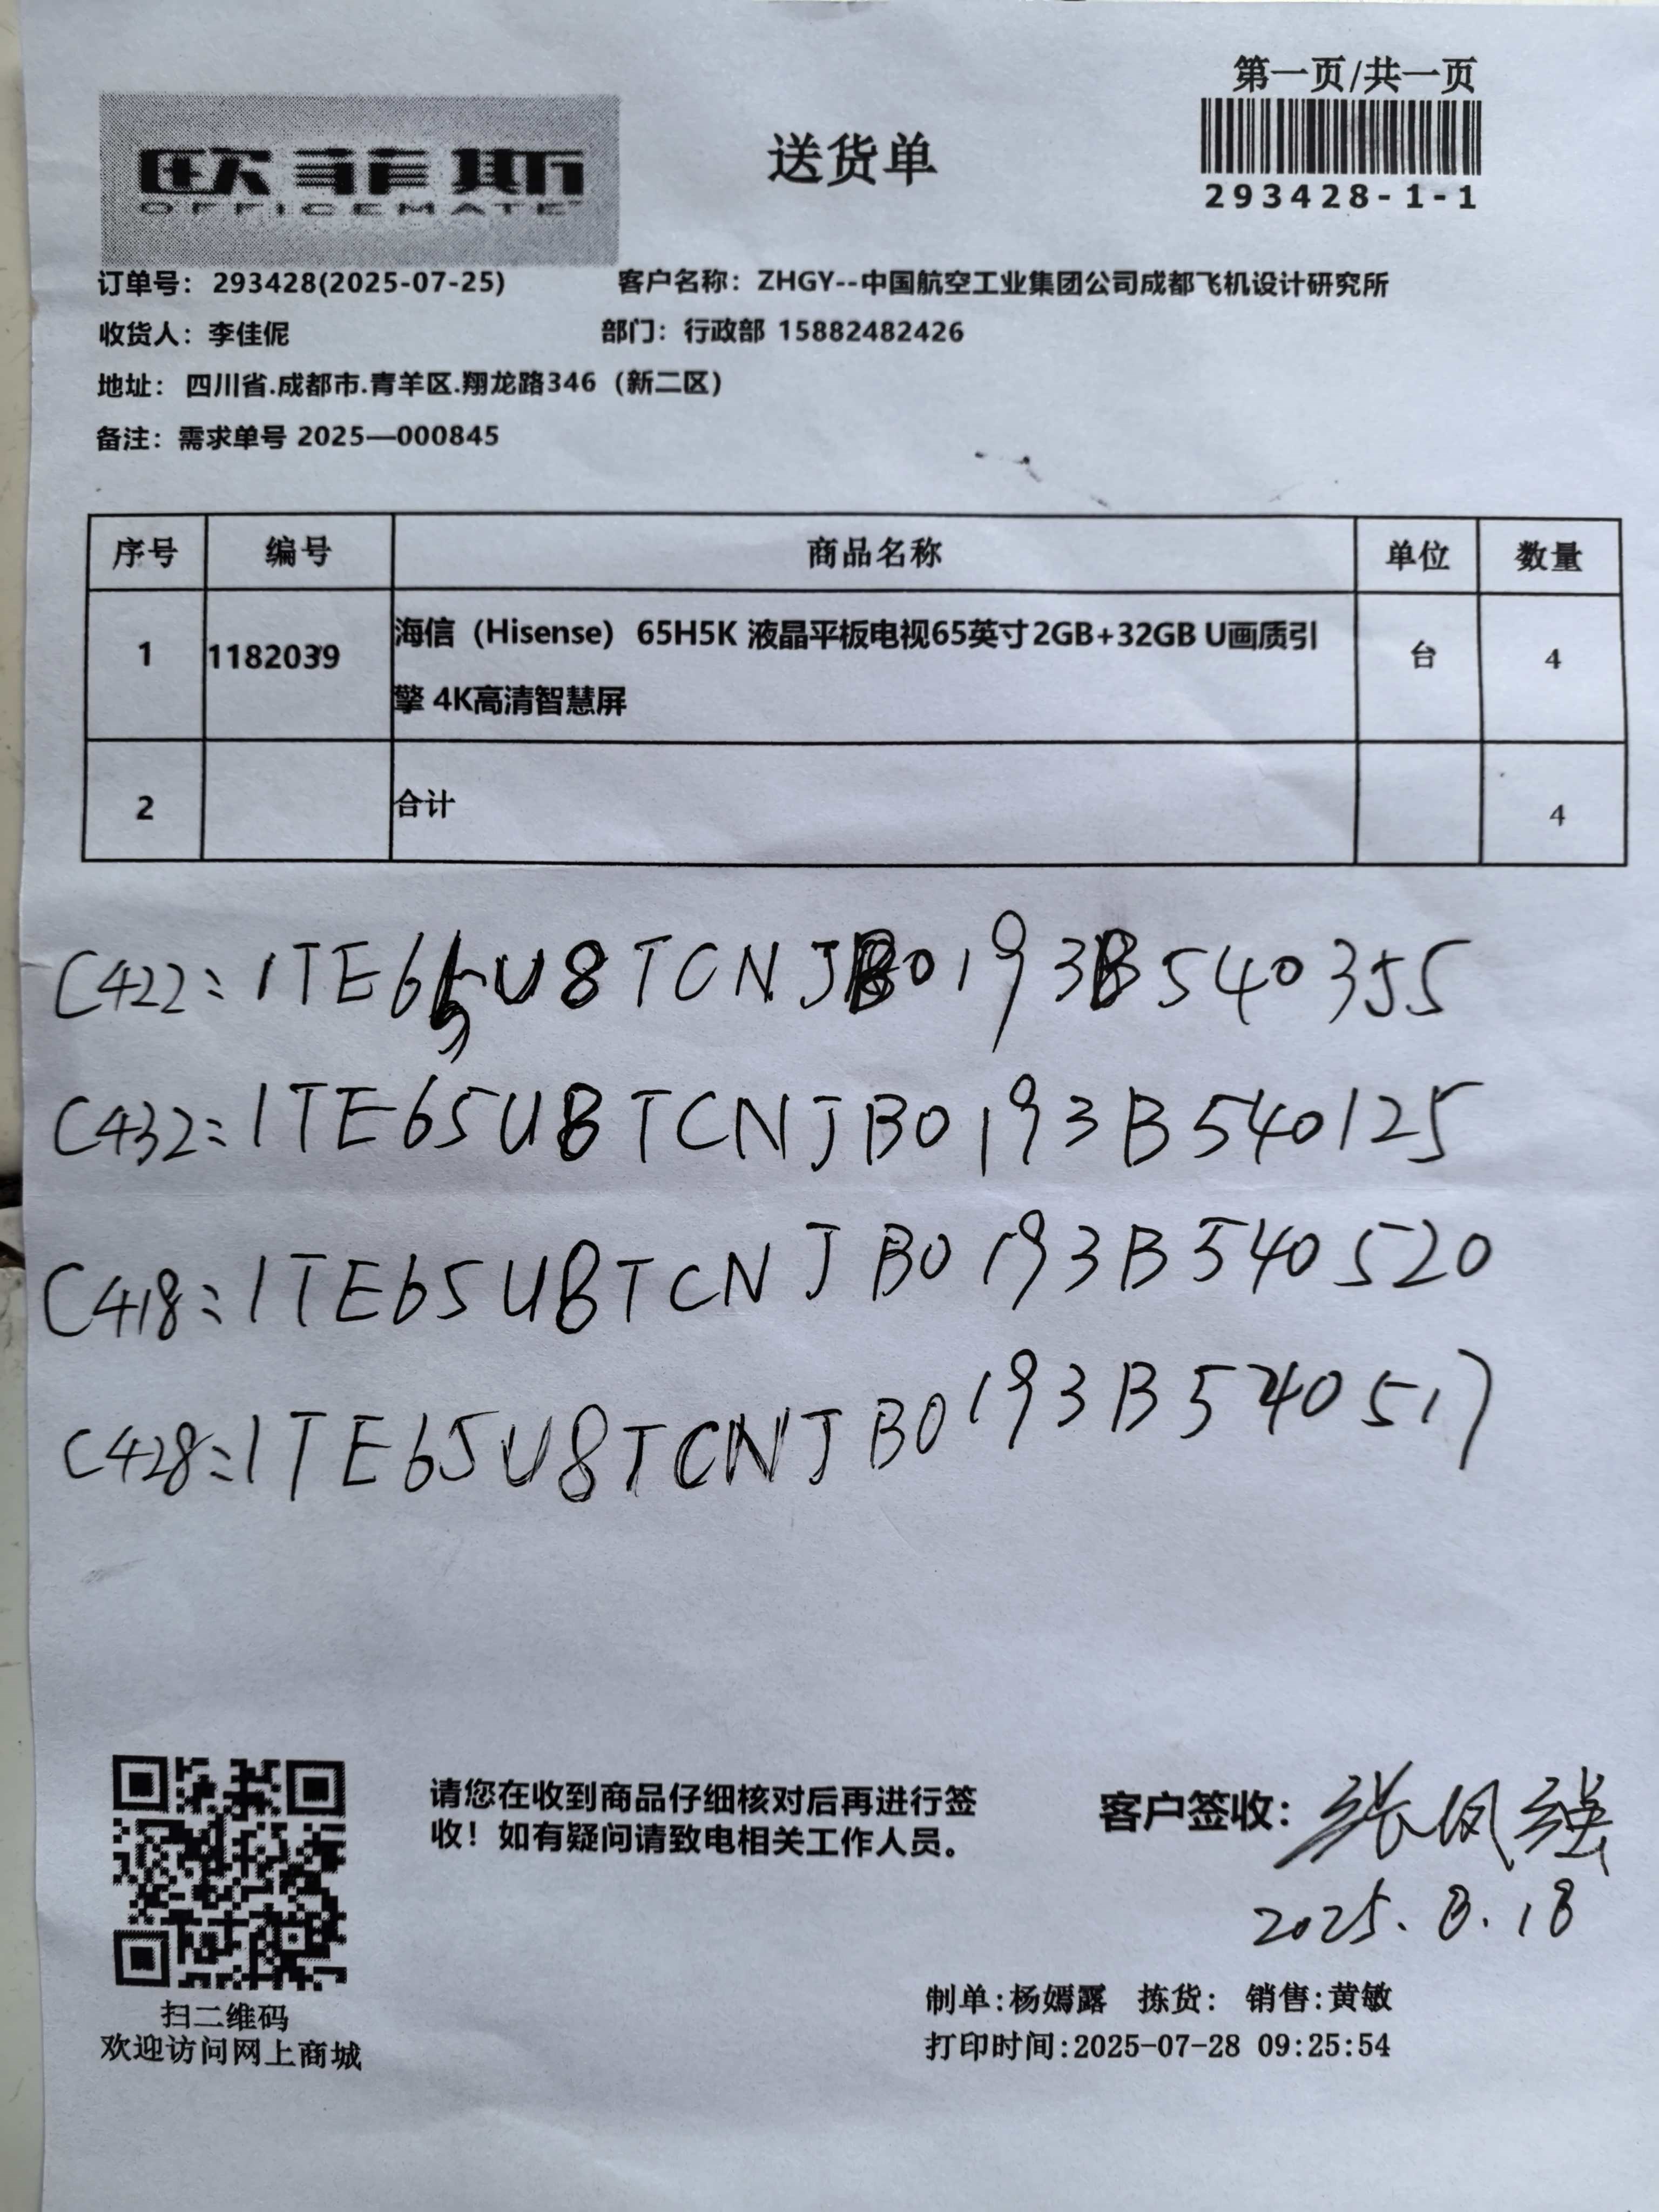 第一页/共一页
欧菲斯
OFFICEMATE
送货单
293428-1-1
订单号：293428(2025-07-25) 客户名称：ZHGY--中国航空工业集团公司成都飞机设计研究所
收货人：李佳伲 部门：行政部 15882482426
地址：四川省.成都市.青羊区.翔龙路346（新二区）
备注：需求单号 2025—000845
序号 编号 商品名称 单位 数量
1 1182039 海信（Hisense）65H5K 液晶平板电视65英寸2GB+32GB U画质引擎 4K高清智慧屏 台 4
2 合计 4
C422：1TE65U8TCNJB0193B540355
C432：1TE65U8TCNJB0193B540125
C418：1TE65U8TCNJB0193B540520
C428：1TE65U8TCNJB0193B540517
请您在收到商品仔细核对后再进行签
收！如有疑问请致电相关工作人员。
客户签收：张凤强
2025.8.18
扫二维码
欢迎访问网上商城
制单:杨嫣露 拣货: 销售:黄敏
打印时间:2025-07-28 09:25:54